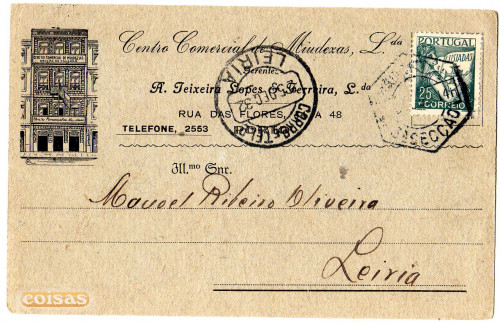 Centro Comercial de Miudezas, L.da
Gerentes
A. Teixeira Lopes & Ferreira, L.da
RUA DAS FLORES, 48
TELEFONE, 2553
PORTUGAL
LUSIADAS
25
CORREIO
LEIRIA
CORR. TEL.
SECCÃO
Ill.mo Snr.
Manoel Ribeiro Oliveira
Leiria
coisas